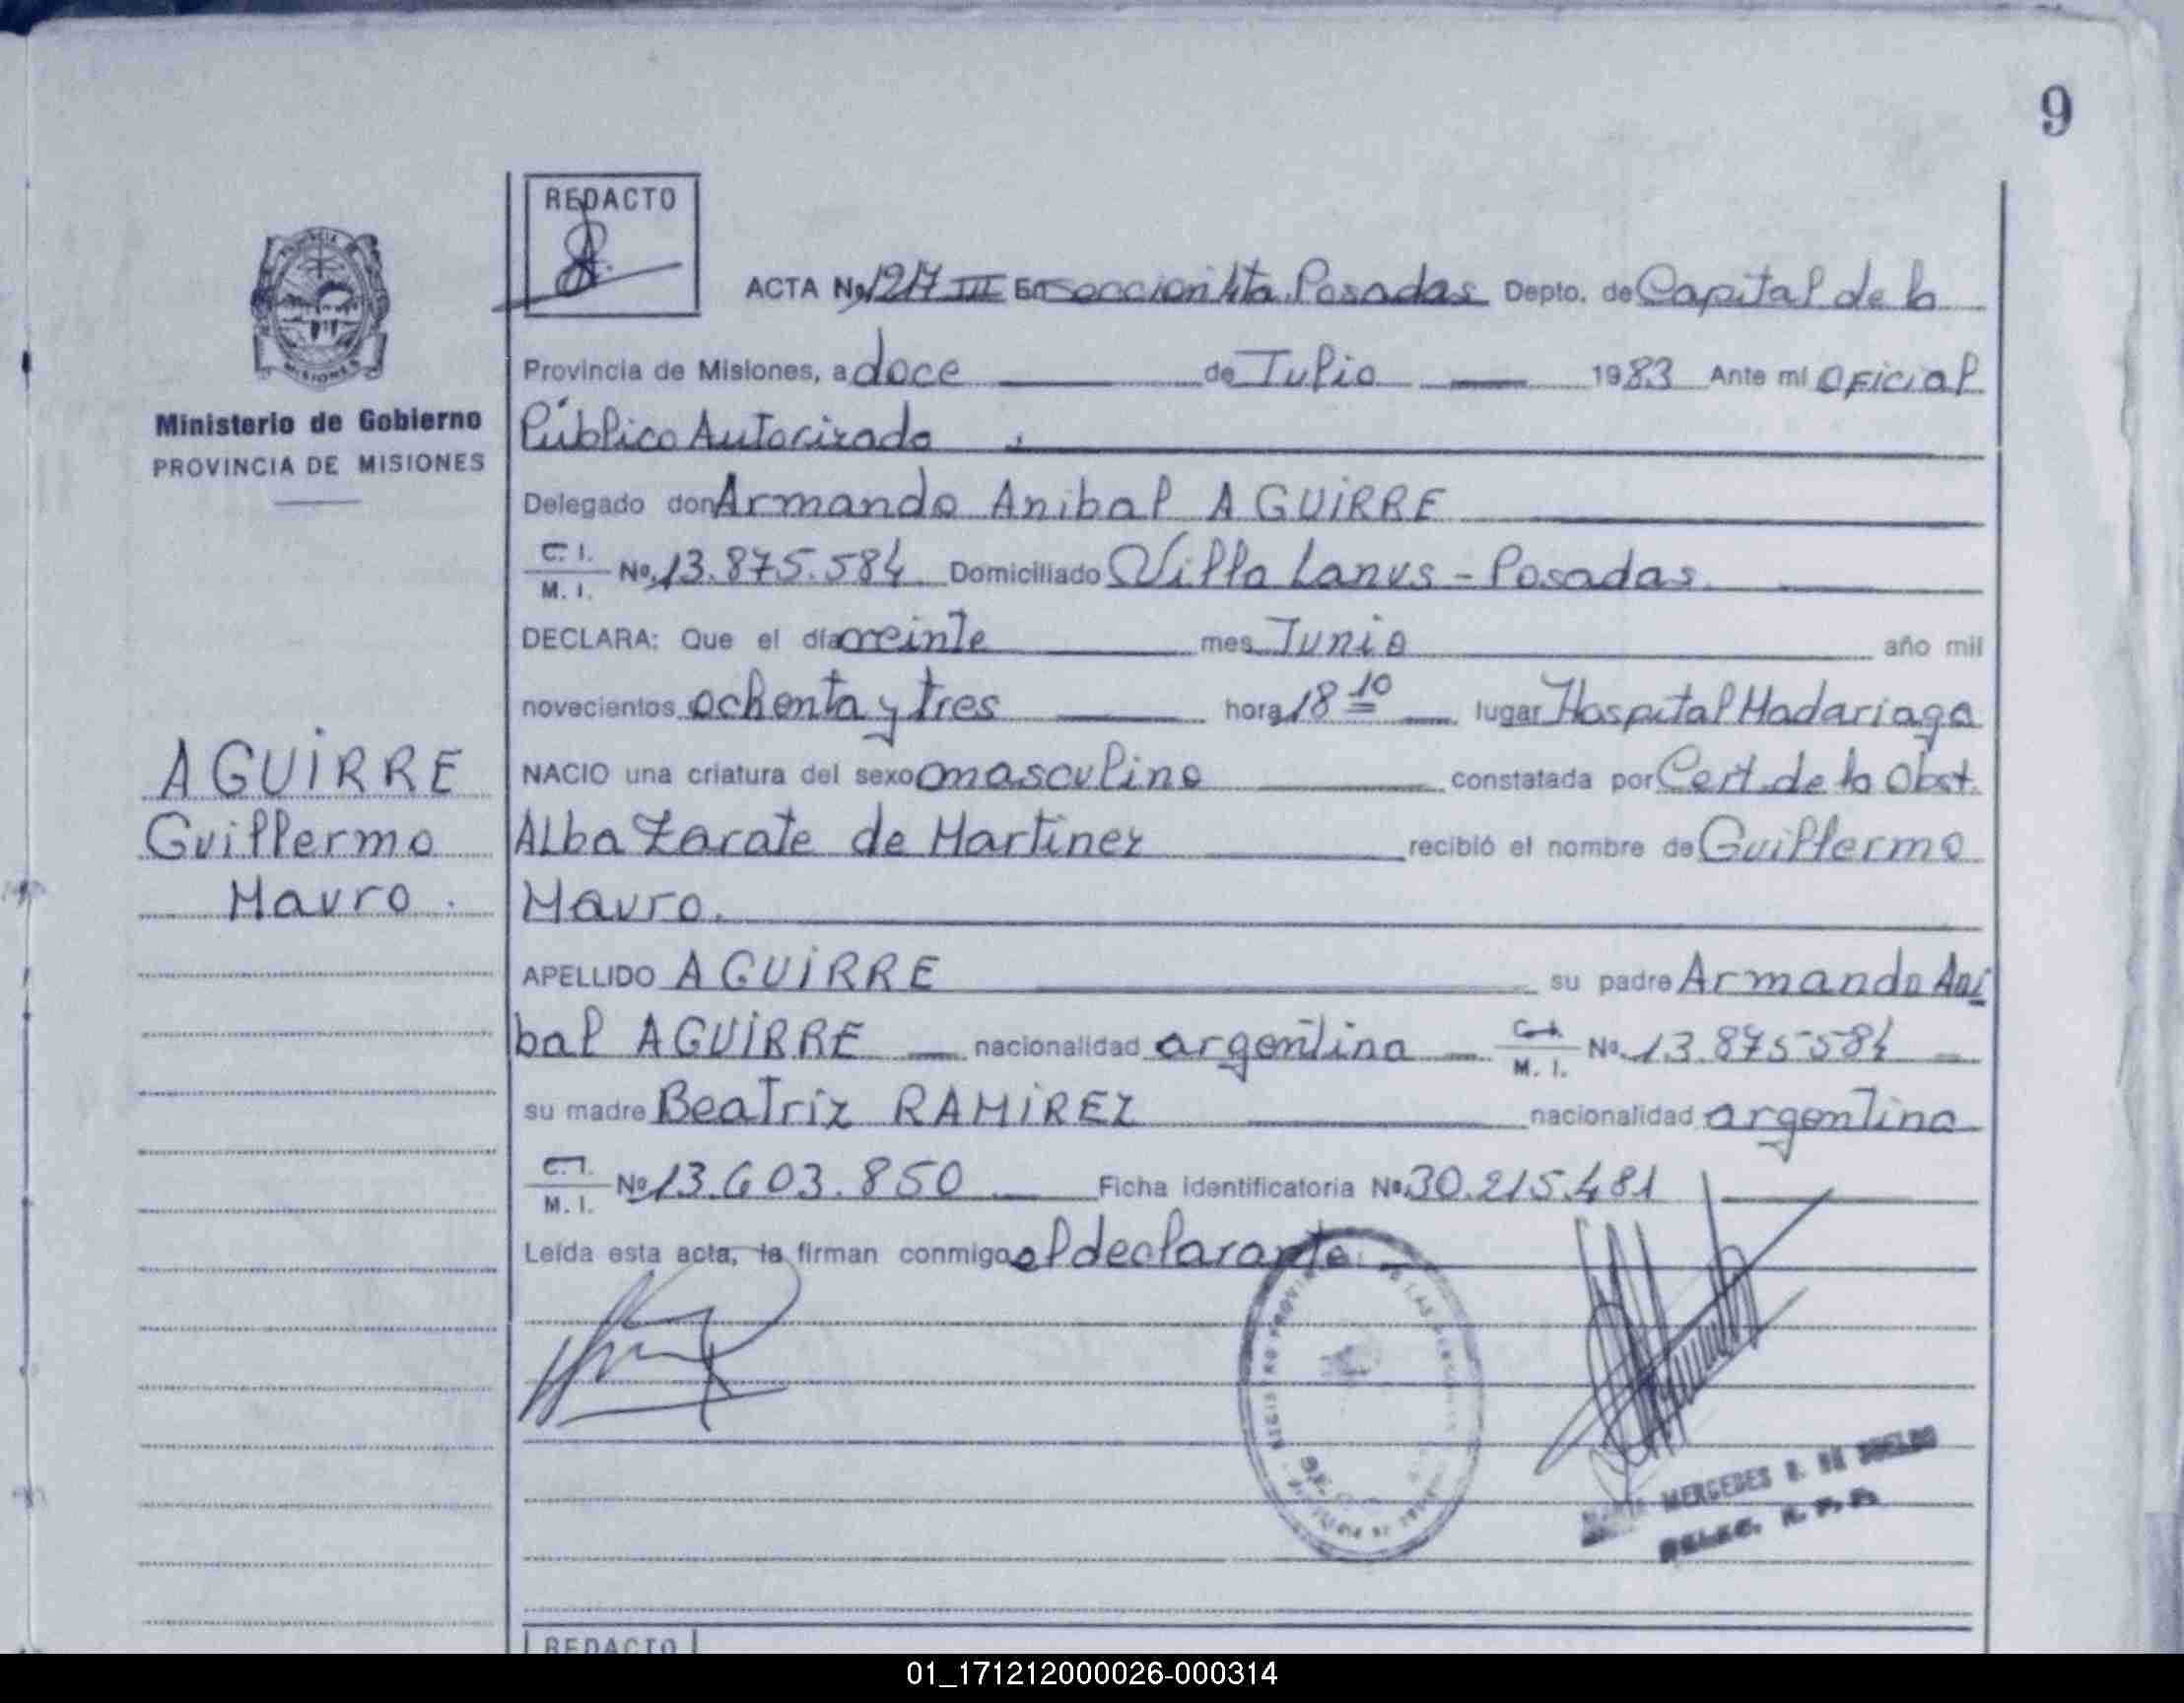 9
REDACTO
ACTA Nº 1217 III En seccion 4ta Posadas Depto. de Capital de la
Provincia de Misiones, a doce de Julio 1983 Ante mi Oficial
Ministerio de Gobierno
PROVINCIA DE MISIONES
Público Autorizado
Delegado don Armando Anibal AGUIRRE
C. I. M. I. Nº 13.875.584 Domiciliado Villa Lanus - Posadas
DECLARA: Que el día veinte mes Junio año mil
novecientos ochenta y tres hora 18 10 lugar Hospital Madariaga
AGUIRRE
Guillermo
Mauro.
NACIO una criatura del sexo masculino constatada por Cert. de la Obst.
Alba Zarate de Martinez recibió el nombre de Guillermo
Mauro.
APELLIDO AGUIRRE su padre Armando Ani
bal AGUIRRE nacionalidad argentina C. I. M. I. Nº 13.875.584
su madre Beatriz RAMIREZ nacionalidad argentina
C. I. M. I. Nº 13.603.850 Ficha identificatoria Nº 30.215.481
Leída esta acta, la firman conmigo el declarante.
MERCEDES
REDACTO
01_171212000026-000314